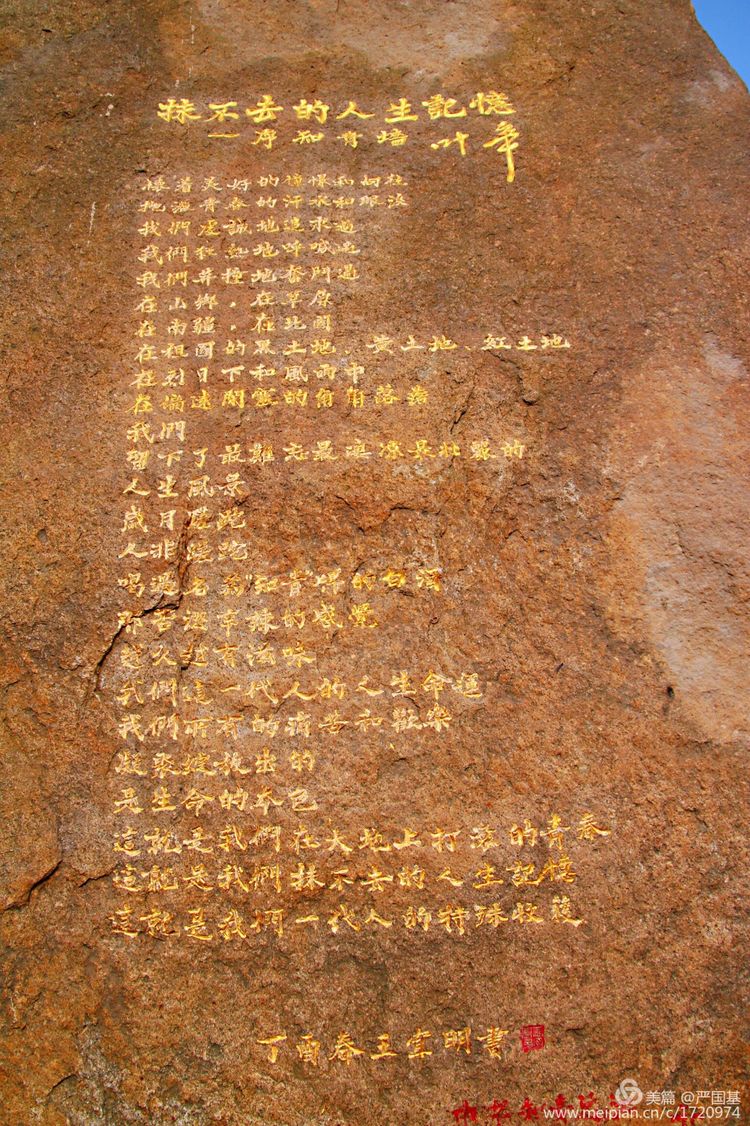 抹不去的人生記憶
一序知青墙 叶辛
懷着美好的憧憬和
拖灑青春的汗水和眼淚
我們虔誠地追求過
我們狂熱地呼喊過
我們莽撞地奮鬥過
在山鄉,在草原
在南疆,在北國
在祖國的黑土地、黄土地、紅土地
在烈日下和風雨中
在偏遠閉塞的角角落落
我們
留下了最難忘最凄凉最壯麗的
人生風景
歲月蹉跎
人非蹉跎
喝過名為"知青"牌的白酒
那苦澀辛辣的感覺
越久越有滋味
我們這一代人的人生命運
我們所有的痛苦和歡樂
凝聚綻放出的
是生命的本色
這就是我們在大地上打滚的青春
這就是我們抹不去的人生記憶
這就是我們一代人的特殊收獲
丁酉春王掌明書
美篇 @严国基
www.meipian.cn/c/1720974